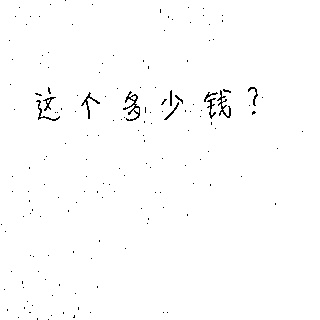 这个多少钱？